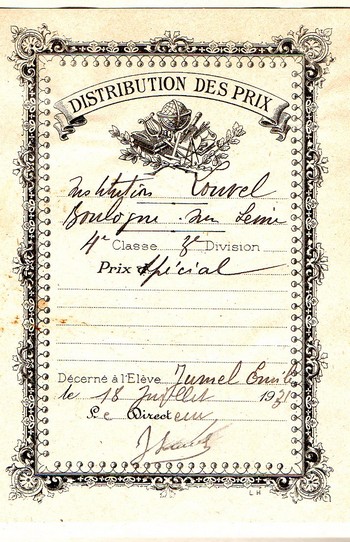 DISTRIBUTION DES PRIX
Institution Louvel
Boulogne sur Seine
4e Classe 2e Division
Prix Spécial
Décerné à l'Elève Jumel Emile
le 18 Juillet 1931
Le Directeur
L H